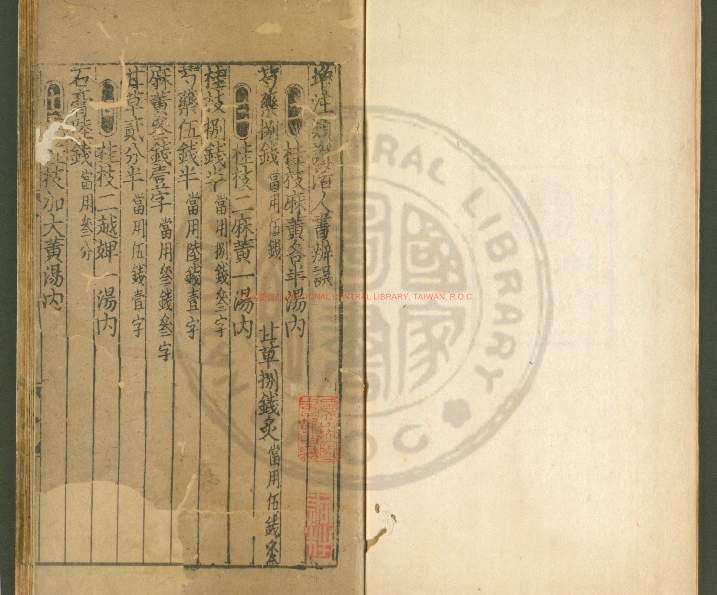 增注類證活人書辨誤
桂枝麻黃各半湯內
芍藥捌錢當用伍錢 甘草捌錢炙當用伍錢叁
桂枝二麻黃一湯內
桂枝捌錢半當用捌錢叁字
芍藥伍錢半當用陸錢壹字
麻黃叁錢壹字當用叁錢叁字
甘草貳分半當用伍錢壹字
桂枝二越婢一湯內
石膏 錢當用叁分
桂枝加大黃湯內
NATIONAL CENTRAL LIBRARY, TAIWAN, R.O.C.
CENTRAL LIBRARY
國家
圖書
R.O.C